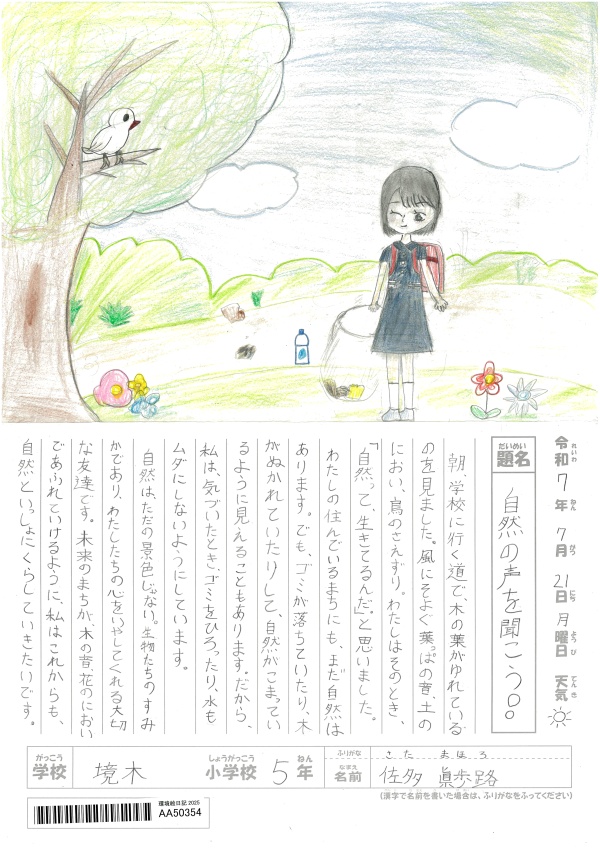 令和7年7月21日月曜日 天気
れいわ ねん がつ にち ようび てんき
だいめい
題名 自然の声を聞こう。
朝、学校に行く道で、木の葉がゆれている
のを見ました。風にそよぐ葉っぱの音、土の
におい、鳥のさえずり。わたしはそのとき、
「自然って、生きてるんだ。」と思いました。
わたしの住んでいるまちにも、まだ自然は
あります。でも、ゴミが落ちていたり、木
がぬかれていたりして、自然がこまってい
るように見えることもあります。だから、
私は、気づいたとき、ゴミをひろったり、水も
ムダにしないようにしています。
自然は、ただの景色じゃない。生物たちのすみ
かであり、わたしたちの心をいやしてくれる大切
な友達です。未来のまちが、木の音、花のにおい
であふれていけるように、私はこれからも、
自然といっしょにくらしていきたいです。
がっこう しょうがっこう ねん
学校 境木 小学校 5年
ふりがな さた まほろ
なまえ
名前 佐多 眞歩路
(漢字で名前を書いた場合は、ふりがなをふってください)
環境絵日記2025
AA50354